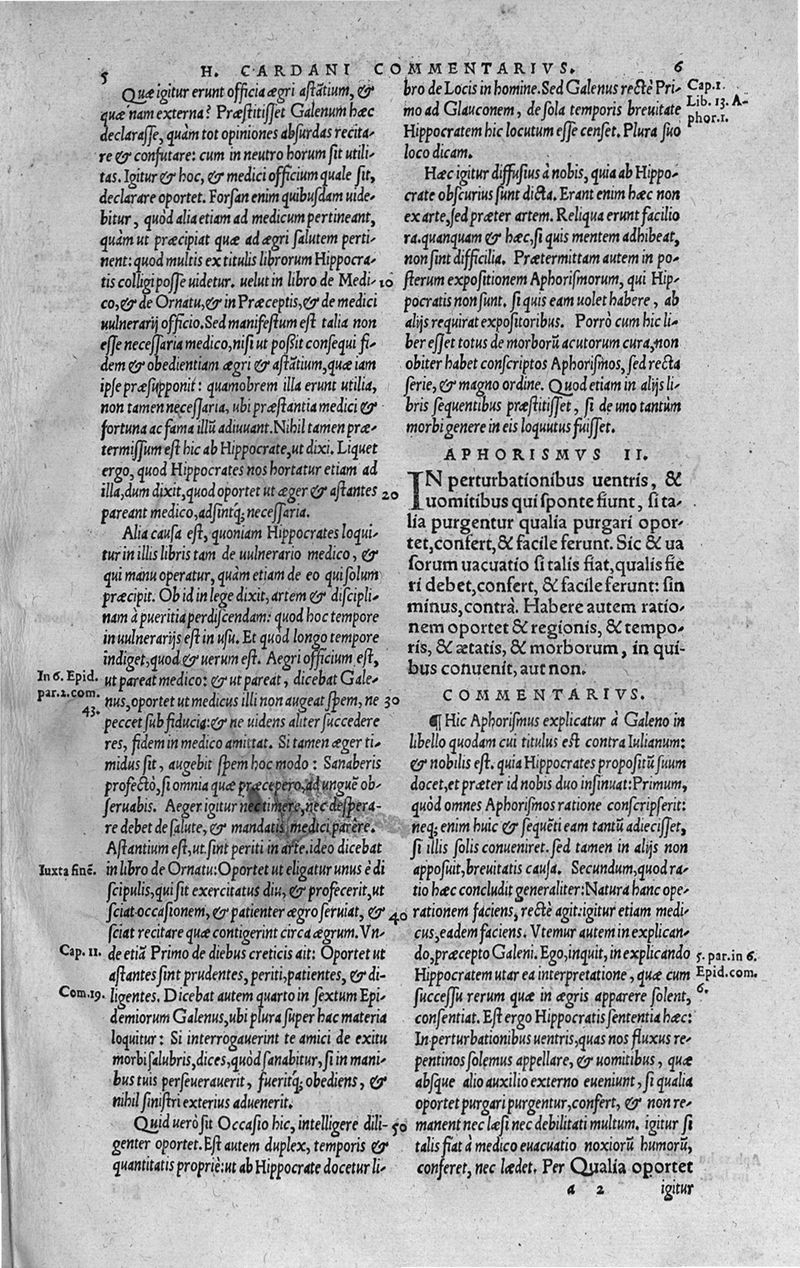 5 H. CARDANI COMMENTARIVS. 6
Quæ igitur erunt officia ægri astãtium, &
quæ nam externa? Præstitisset Galenum hæc
declarasse, quàm tot opiniones absurdas recita-
re & confutare: cum in neutro horum sit utili-
tas. Igitur & hoc, & medici officium quale sit,
declarare oportet. Forsan enim quibusdam uide-
bitur, quòd alia etiam ad medicum pertineant,
quàm ut præcipiat quæ ad ægri salutem perti-
nent: quod multis ex titulis librorum Hippocra-
tis colligi posse uidetur. uelut in libro de Medi- 10
co, & de Ornatu, & in Præceptis, & de medici
uulnerarij officio. Sed manifestum est talia non
esse necessaria medico, nisi ut possit consequi fi-
dem & obedientiam ægri & astãtium, quæ iam
ipse præsupponit: quamobrem illa erunt utilia,
non tamen necessaria, ubi præstantia medici &
fortuna ac fama illũ adiuuant. Nihil tamen præ-
termissum est hic ab Hippocrate, ut dixi. Liquet
ergo, quod Hippocrates nos hortatur etiam ad
illa, dum dixit, quod oportet ut æger & astantes 20
pareant medico, adsintq; necessaria.
Alia causa est, quoniam Hippocrates loqui-
tur in illis libris tam de uulnerario medico, &
qui manu operatur, quàm etiam de eo qui solum
præcipit. Ob id in lege dixit, artem & discipli-
nam à pueritia perdiscendam: quod hoc tempore
in uulnerarijs est in usu. Et quod longo tempore
indiget, quod & uerum est. Aegri officium est,
In 6. Epid.
par. 2. com.
43.
ut pareat medico: & ut pareat, dicebat Gale-
nus, oportet ut medicus illi non augeat spem, ne 30
peccet sub fiducia: & ne uidens aliter succedere
res, fidem in medico amittat. Si tamen æger ti-
midus sit, augebit spem hoc modo: Sanaberis
profectò, si omnia quæ præcepero, ad unguẽ ob-
seruabis. Aeger igitur nec timere, nec despera-
re debet de salute, & mandatis medici parêre.
Astantium est, ut sint periti in arte. ideo dicebat
Iuxta finẽ.
in libro de Ornatu: Oportet ut eligatur unus è di
scipulis, qui sit exercitatus diu, & profecerit, ut
sciat occasionem, & patienter ægro seruiat, & 40
sciat recitare quæ contigerint circa ægrum. Vn-
Cap. 11.
de etiã Primo de diebus creticis ait: Oportet ut
astantes sint prudentes, periti, patientes, & di-
Com. 19.
ligentes. Dicebat autem quarto in sextum Epi-
demiorum Galenus, ubi plura super hac materia
loquitur: Si interrogauerint te amici de exitu
morbi salubris, dices, quòd sanabitur, si in mani-
bus tuis perseuerauerit, fueritq; obediens, &
nihil sinistri exterius aduenerit.
Quid uerò sit Occasio hic, intelligere dili- 50
genter oportet. Est autem duplex, temporis &
quantitatis propriè: ut ab Hippocrate docetur li-
bro de Locis in homine. Sed Galenus rectè Pri-
mo ad Glauconem, de sola temporis breuitate
Hippocratem hic locutum esse censet. Plura suo
loco dicam.
Cap. 1.
Lib. 13. A-
phor. 1.
Hæc igitur diffusius à nobis, quia ab Hippo-
crate obscurius sunt dicta. Erant enim hæc non
ex arte, sed præter artem. Reliqua erunt facilio
ra. quanquam & hæc, si quis mentem adhibeat,
non sint difficilia. Prætermittam autem in po-
sterum expositionem Aphorismorum, qui Hip-
pocratis non sunt. si quis eam uolet habere, ab
alijs requirat expositoribus. Porrò cum hic li-
ber esset totus de morborũ acutorum cura, non
obiter habet conscriptos Aphorismos, sed recta
serie, & magno ordine. Quod etiam in alijs li-
bris sequentibus præstitisset, si de uno tantùm
morbi genere in eis loquutus fuisset.
APHORISMVS II.
IN perturbationibus uentris, &
uomitibus qui sponte fiunt, si ta-
lia purgentur qualia purgari opor-
tet, confert, & facile ferunt. Sic & ua
sorum uacuatio si talis fiat, qualis fie
ri debet, confert, & facile ferunt: sin
minus, contrà. Habere autem ratio-
nem oportet & regionis, & tempo-
ris, & ætatis, & morborum, in qui-
bus conuenit, aut non.
COMMENTARIVS.
¶ Hic Aphorismus explicatur à Galeno in
libello quodam cui titulus est contra Iulianum:
& nobilis est. quia Hippocrates propositũ suum
docet, et præter id nobis duo insinuat: Primum,
quòd omnes Aphorismos ratione conscripserit:
neq; enim huic & sequẽti eam tantũ adiecisset,
si illis solis conueniret. sed tamen in alijs non
apposuit, breuitatis causa. Secundum, quod ra-
tio hæc concludit generaliter: Natura hanc ope-
rationem faciens, rectè agit: igitur etiam medi-
cus, eadem faciens. Vtemur autem in explican-
do, præcepto Galeni. Ego, inquit, in explicando
Hippocratem utar ea interpretatione, quæ cum
successu rerum quæ in ægris apparere solent,
5. par. in 6.
Epid. com.
6.
consentiat. Est ergo Hippocratis sententia hæc:
In perturbationibus uentris, quas nos fluxus re-
pentinos solemus appellare, & uomitibus, quæ
absque alio auxilio externo eueniunt, si qualia
oportet purgari purgentur, confert, & non re-
manent nec læsi nec debilitati multum. igitur si
talis fiat à medico euacuatio noxiorũ humorũ,
conferet, nec lædet. Per Qualia oportet
a 2 igitur